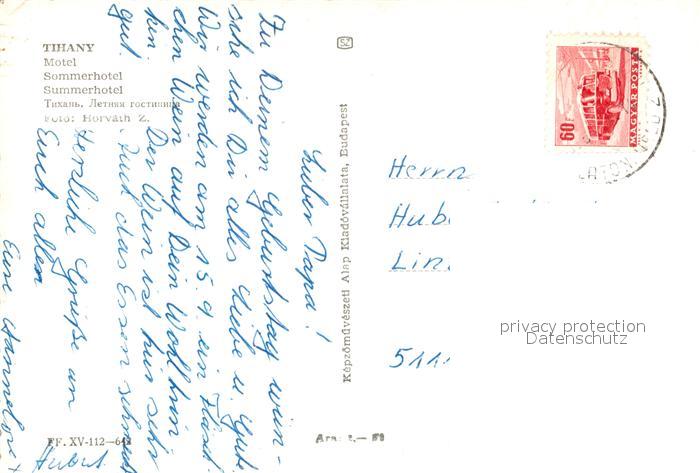 TIHANY
Motel
Sommerhotel
Summerhotel
Тихань, Летняя гостиница
Foto: Horváth Z.
Lieber Papa!
Zu Deinem Geburtstag wün-
sche ich Dir alles Liebe u. Gute
Wir werden am 15.9. ein
chen Wein auf Dein Wohl trin
ken. Der Wein ist hier sehr
gut. Auch das Essen schmeckt
Herzliche Grüße an
Euch allen
Eure Hannelore
Hubert
FF. XV-112—
Képzőművészeti Alap Kiadóvállalata, Budapest
SZ
60f
MAGYAR POSTA
Herrn
Hub
Lin
privacy protection
Datenschutz